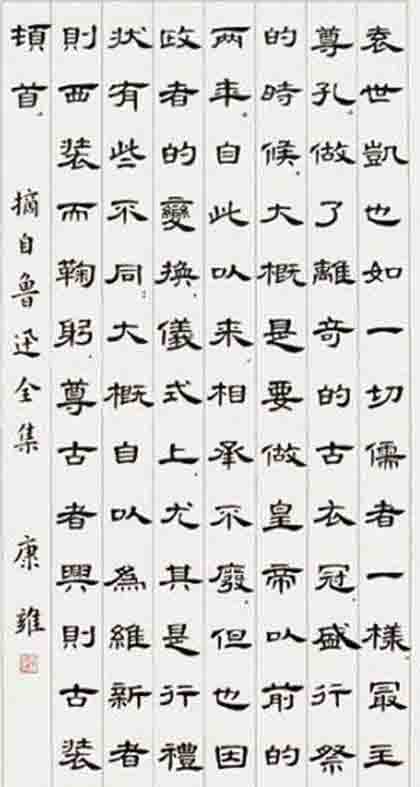 袁世凱也如一切儒者一樣。冣主
尊孔。做了離奇的古衣冠。盛行祭
的時候。大概是要做皇帝以前的
两年。自此以来。相承不廢。但也因
政者的變换。儀式上。尤其是行禮
状有些不同。大概自以為維新者
則西装而鞠躬。尊古者興則古装
頓首。
摘自魯迅全集 康雍